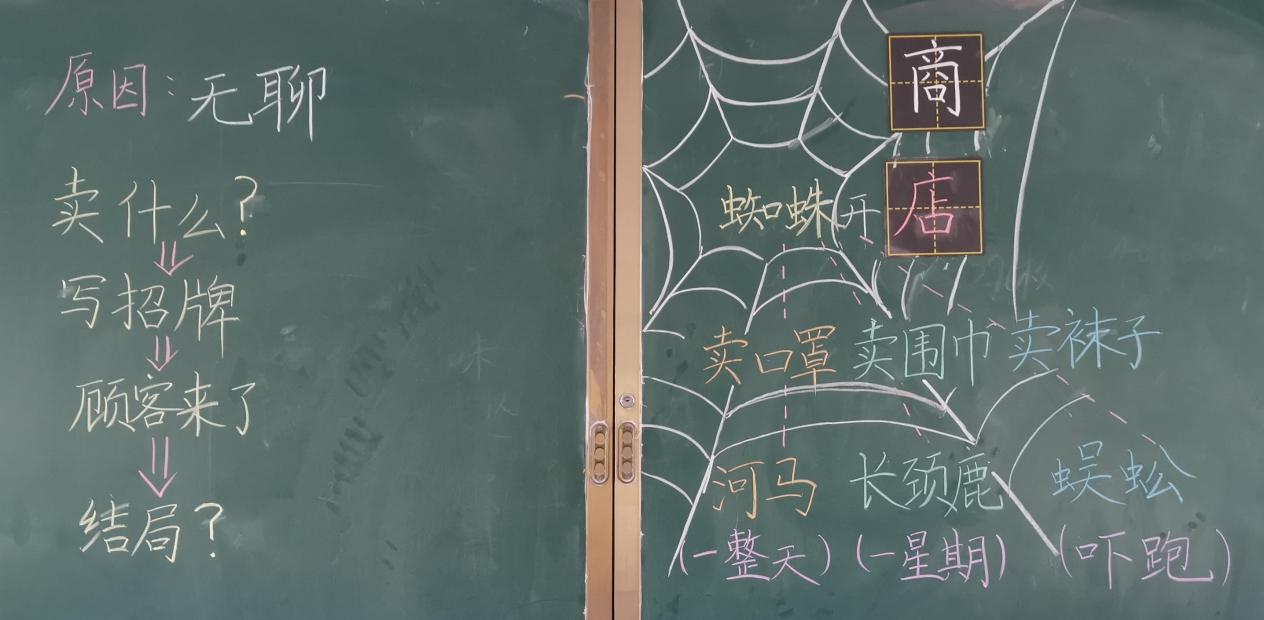 原因：无聊
卖什么？
写招牌
顾客来了
结局？
商
蜘蛛开店
卖口罩 卖围巾 卖袜子
河马 长颈鹿 蜈蚣
（一整天）（一星期）（吓跑）